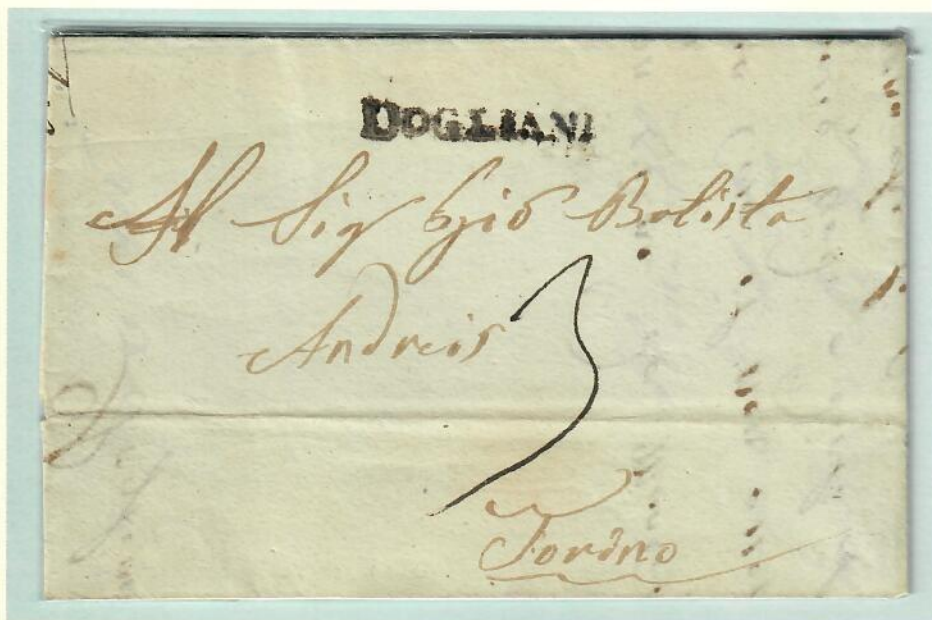 DOGLIANI
Al Sig Gio Batista
Andreis
3
Torino